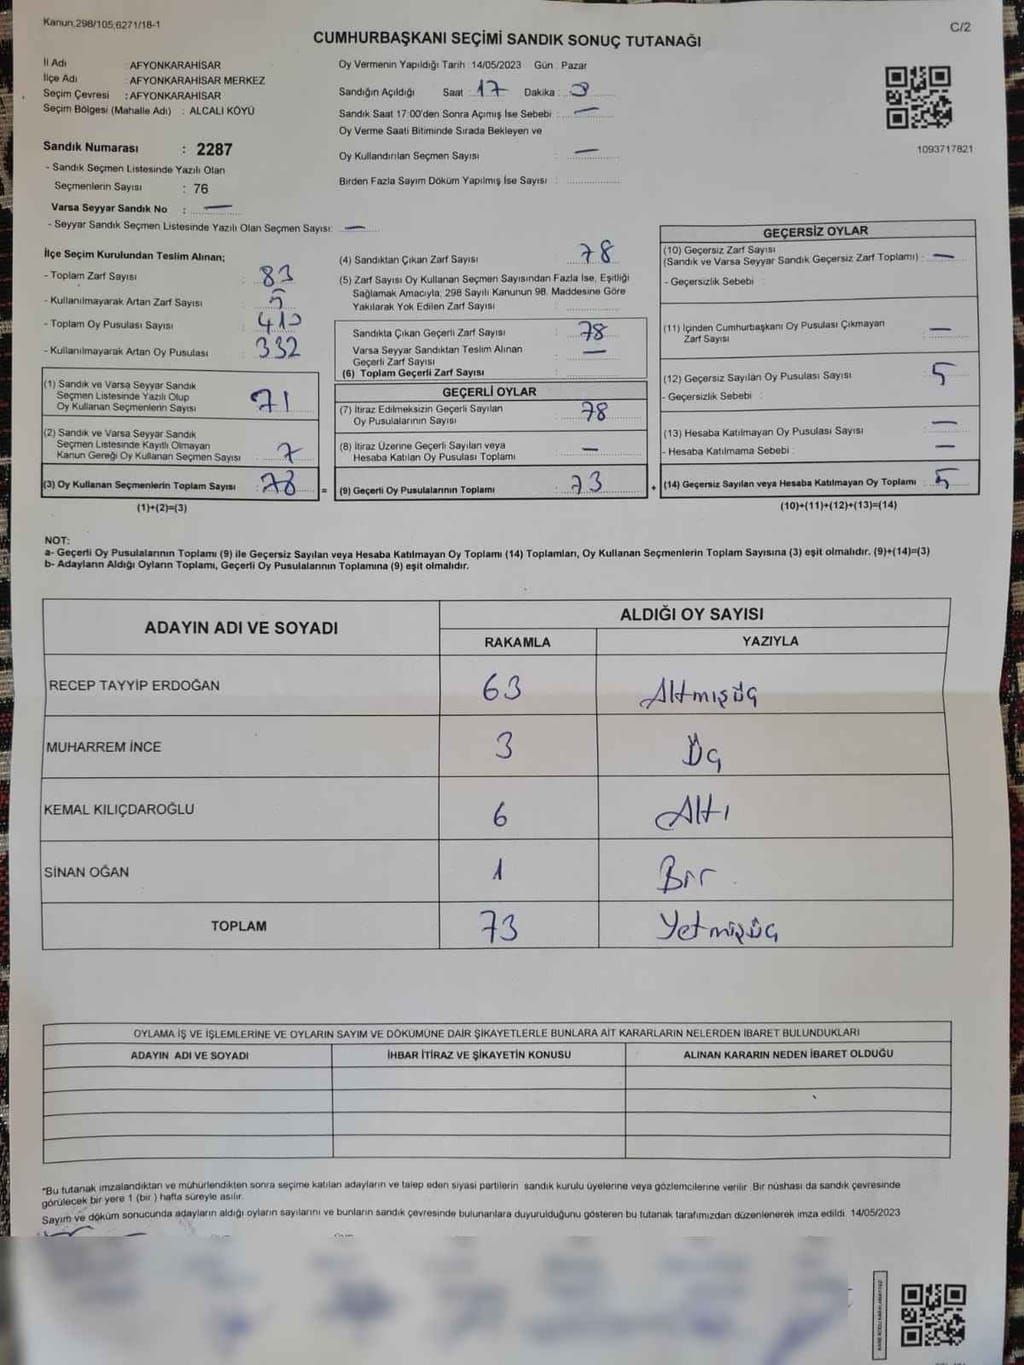 Kanun;298/105;6271/18-1
C/2
CUMHURBAŞKANI SEÇİMİ SANDIK SONUÇ TUTANAĞI
İl Adı : AFYONKARAHİSAR
İlçe Adı : AFYONKARAHİSAR MERKEZ
Seçim Çevresi : AFYONKARAHİSAR
Seçim Bölgesi (Mahalle Adı) : ALCALI KÖYÜ
Sandık Numarası : 2287
- Sandık Seçmen Listesinde Yazılı Olan
Seçmenlerin Sayısı : 76
Varsa Seyyar Sandık No : —
- Seyyar Sandık Seçmen Listesinde Yazılı Olan Seçmen Sayısı: —
Oy Vermenin Yapıldığı Tarih :14/05/2023 Gün : Pazar
Sandığın Açıldığı Saat : 17 Dakika :
Sandık Saat 17:00'den Sonra Açımış İse Sebebi : —
Oy Verme Saati Bitiminde Sırada Bekleyen ve
Oy Kullandırılan Seçmen Sayısı : —
Birden Fazla Sayım Döküm Yapılmış İse Sayısı :
1093717821
İlçe Seçim Kurulundan Teslim Alınan;
- Toplam Zarf Sayısı : 83
- Kullanılmayarak Artan Zarf Sayısı : 5
- Toplam Oy Pusulası Sayısı : 410
- Kullanılmayarak Artan Oy Pusulası : 332
(1) Sandık ve Varsa Seyyar Sandık
Seçmen Listesinde Yazılı Olup
Oy Kullanan Seçmenlerin Sayısı : 71
(2) Sandık ve Varsa Seyyar Sandık
Seçmen Listesinde Kayıtlı Olmayan
Kanun Gereği Oy Kullanan Seçmen Sayısı : 7
(3) Oy Kullanan Seçmenlerin Toplam Sayısı : 78 =
(1)+(2)=(3)
(4) Sandıktan Çıkan Zarf Sayısı : 78
(5) Zarf Sayısı Oy Kullanan Seçmen Sayısından Fazla İse, Eşitliği
Sağlamak Amacıyla, 298 Sayılı Kanunun 98. Maddesine Göre
Yakılarak Yok Edilen Zarf Sayısı :
Sandıkta Çıkan Geçerli Zarf Sayısı : 78
Varsa Seyyar Sandıktan Teslim Alınan
Geçerli Zarf Sayısı : —
(6) Toplam Geçerli Zarf Sayısı :
GEÇERLİ OYLAR
(7) İtiraz Edilmeksizin Geçerli Sayılan
Oy Pusulalarının Sayısı : 78
(8) İtiraz Üzerine Geçerli Sayılan veya
Hesaba Katılan Oy Pusulası Toplamı : —
(9) Geçerli Oy Pusulalarının Toplamı : 73 +
GEÇERSİZ OYLAR
(10) Geçersiz Zarf Sayısı
(Sandık ve Varsa Seyyar Sandık Geçersiz Zarf Toplamı) : —
- Geçersizlik Sebebi :
(11) İçinden Cumhurbaşkanı Oy Pusulası Çıkmayan
Zarf Sayısı : —
(12) Geçersiz Sayılan Oy Pusulası Sayısı : 5
- Geçersizlik Sebebi :
(13) Hesaba Katılmayan Oy Pusulası Sayısı : —
- Hesaba Katılmama Sebebi : —
(14) Geçersiz Sayılan veya Hesaba Katılmayan Oy Toplamı : 5
(10)+(11)+(12)+(13)=(14)
NOT:
a- Geçerli Oy Pusulalarının Toplamı (9) ile Geçersiz Sayılan veya Hesaba Katılmayan Oy Toplamı (14) Toplamları, Oy Kullanan Seçmenlerin Toplam Sayısına (3) eşit olmalıdır. (9)+(14)=(3)
b- Adayların Aldığı Oyların Toplamı, Geçerli Oy Pusulalarının Toplamına (9) eşit olmalıdır.
ADAYIN ADI VE SOYADI
ALDIĞI OY SAYISI
RAKAMLA YAZIYLA
RECEP TAYYİP ERDOĞAN 63 Altmışüç
MUHARREM İNCE 3 Üç
KEMAL KILIÇDAROĞLU 6 Altı
SİNAN OĞAN 1 Bir
TOPLAM 73 Yetmişüç
OYLAMA İŞ VE İŞLEMLERİNE VE OYLARIN SAYIM VE DÖKÜMÜNE DAİR ŞİKAYETLERLE BUNLARA AİT KARARLARIN NELERDEN İBARET BULUNDUKLARI
ADAYIN ADI VE SOYADI İHBAR İTİRAZ VE ŞİKAYETİN KONUSU ALINAN KARARIN NEDEN İBARET OLDUĞU
*Bu tutanak imzalandıktan ve mühürlendikten sonra seçime katılan adayların ve talep eden siyasi partilerin sandık kurulu üyelerine veya gözlemcilerine verilir. Bir nüshası da sandık çevresinde
görülecek bir yere 1 (bir ) hafta süreyle asılır.
Sayım ve döküm sonucunda adayların aldığı oyların sayılarını ve bunların sandık çevresinde bulunanlara duyurulduğunu gösteren bu tutanak tarafımızdan düzenlenerek imza edildi. 14/05/2023